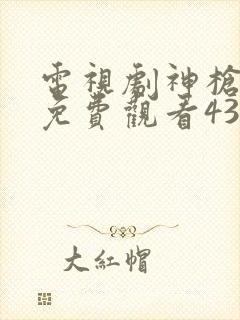 電視劇神槍
免費觀看43
大紅帽